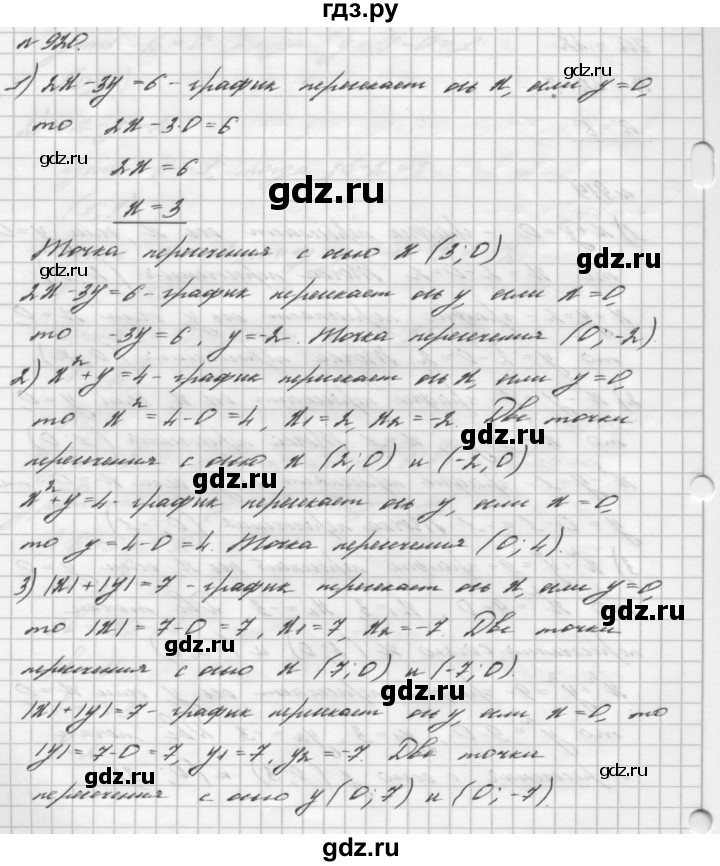 гдз.ру
№ 920.
1) 2x-3y=6 - график пересекает ось x, если y=0,
gdz.ru
то 2x-3·0=6
gdz.ru
2x=6
gdz.ru
x=3
Точка пересечения с осью x (3;0)
gdz.ru
gdz.ru
2x-3y=6 - график пересекает ось y, если x=0,
то -3y=6, y=-2. Точка пересечения (0;-2).
2) x²+y=4 - график пересекает ось x, если y=0,
то x²=4-0=4, x1=2, x2=-2. Две точки
gdz.ru
пересечения с осью x (2;0) и (-2;0)
gdz.ru
x²+y=4 - график пересекает ось y, если x=0,
то y=4-0=4. Точка пересечения (0;4).
3) |x|+|y|=7 - график пересекает ось x, если y=0,
gdz.ru
то |x|=7-0=7, x1=7, x2=-7. Две точки
gdz.ru
пересечения с осью x (7;0) и (-7;0)
gdz.ru
|x|+|y|=7 - график пересекает ось y, если x=0, то
|y|=7-0=7, y1=7, y2=-7. Две точки
gdz.ru
gdz.ru
пересечения с осью y (0;7) и (0;-7).
gdz.ru